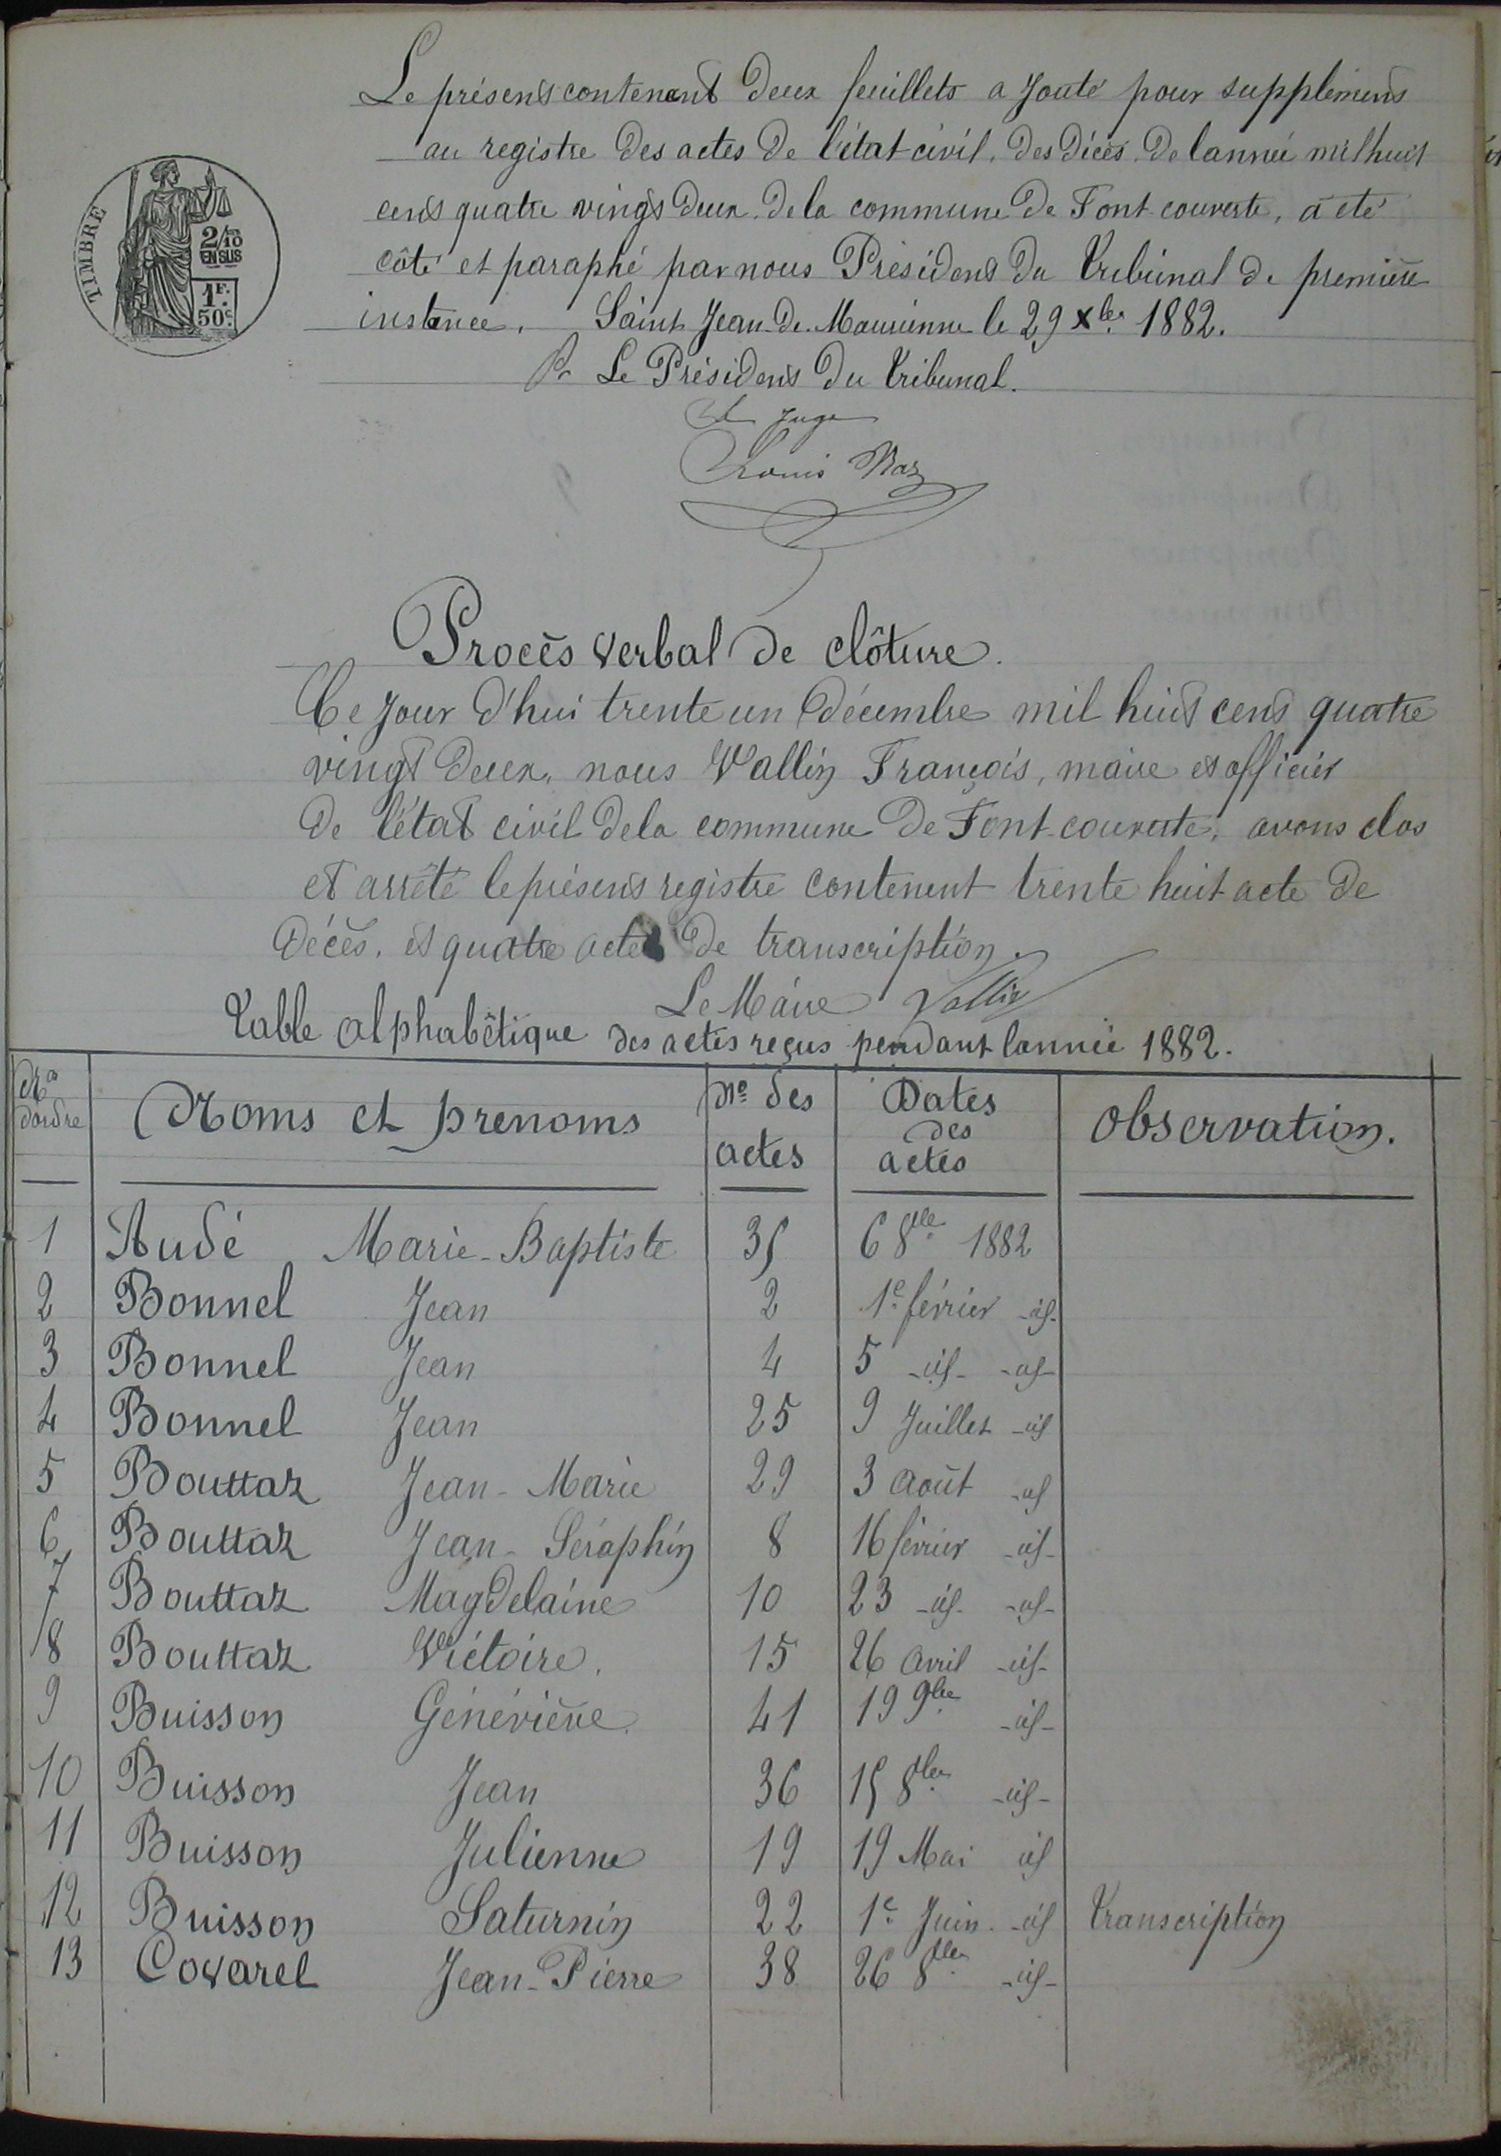 Le présent contenant deux feuillets a jouté pour supplement
au registre des actes de l'état-civil, des décès de lannée mil huit
cent quatre vingt deux de la commune de Font-couverte, a été
côté et paraphé par nous Président du Tribunal de première
instance. Saint Jean-de-Maurienne le 29 xbre 1882.
Pr Le Président du Tribunal.
Le Juge
Louis
TIMBRE
2/10
EN SUS
1F.
50c.
Procès verbal de clôture.
Ce jour d'hui trente un décembre mil huit cent quatre
vingt deux, nous Vallin François, maire et officier
de l'état civil dela commune de Font-couverte, avons clos
et arrêté le présent registre contenent trente huit acte de
décès, et quatre actes de transcription.
Le Maire Vallin
Table alphabêtique des actes reçus pendant lannée 1882.
No dordre Noms et prenoms No des actes Dates des actes observation.
1 Audé Marie-Baptiste 35 6 8bre 1882
2 Bonnel Jean 2 1e février -id-
3 Bonnel Jean 4 5 -id- -id-
4 Bonnel Jean 25 9 Juillet -id
5 Bouttaz Jean-Marie 29 3 Août -id
6 Bouttaz Jean-Séraphin 8 16 février -id-
7 Bouttaz Magdelaine 10 23 -id- -id-
8 Bouttaz Victoire. 15 26 Avril -id-
9 Buisson Généviève. 41 19 9bre -id-
10 Buisson Jean 36 15 8bre -id-
11 Buisson Julienne 19 19 Mai id
12 Buisson Saturnin 22 1e Juin -id transcription
13 Covarel Jean-Pierre 38 26 8bre -id-